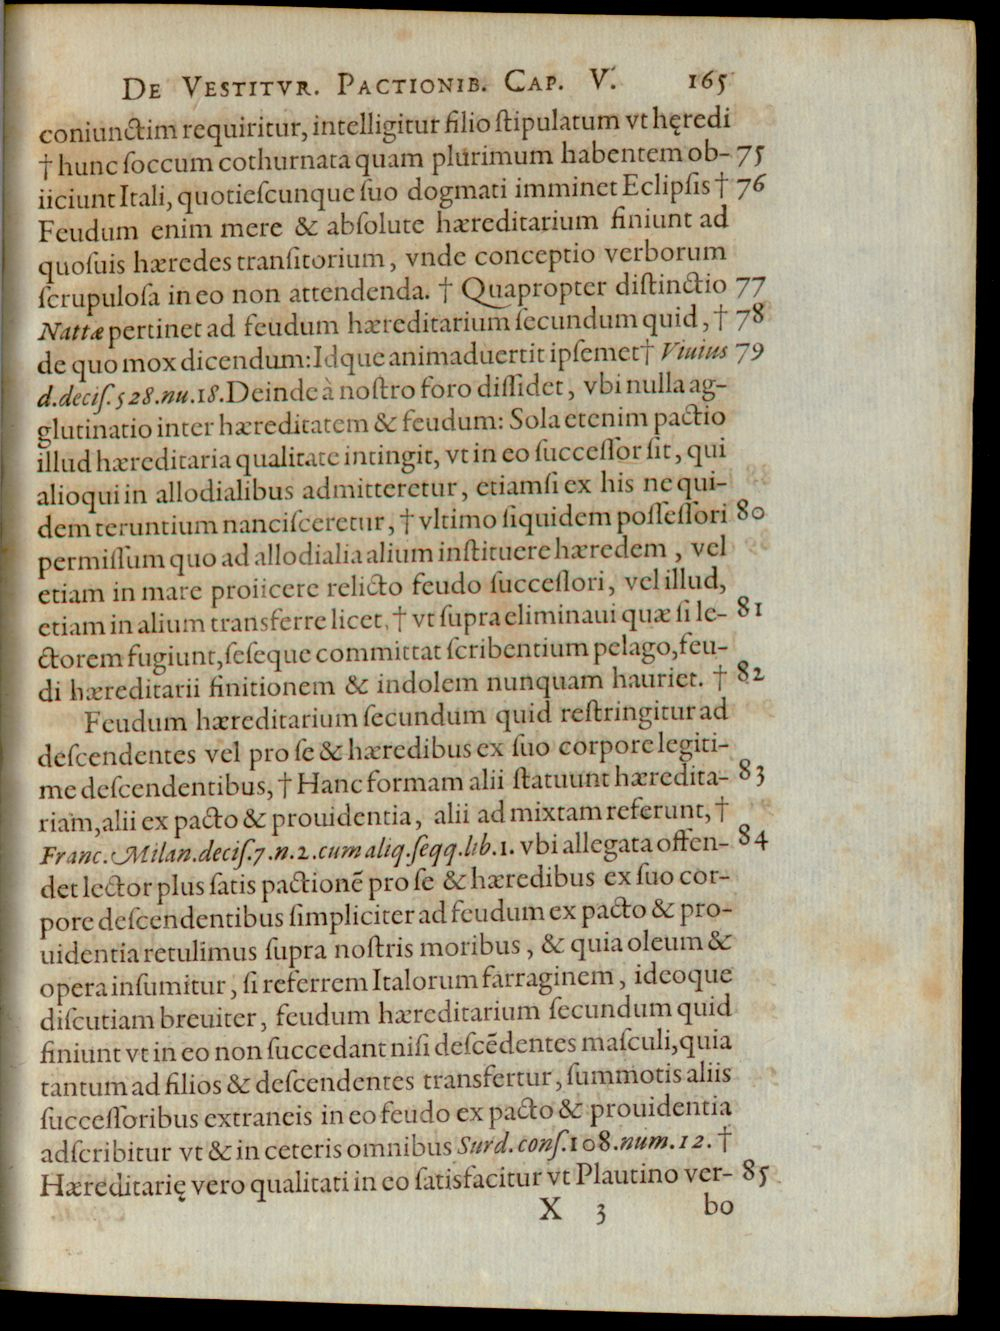 De Vestitvr. Pactionib. Cap. V. 165
coniunctim requiritur, intelligitur filio ſtipulatum vt hęredi
† hunc ſoccum cothurnata quam plurimum habentem ob- 75
iiciunt Itali, quotieſcunque ſuo dogmati imminet Eclipſis † 76
Feudum enim mere & abſolute hæreditarium finiunt ad
quoſuis hæredes tranſitorium, vnde conceptio verborum
ſcrupuloſa in eo non attendenda. † Quapropter diſtinctio 77
Nattæ pertinet ad feudum hæreditarium ſecundum quid, † 78
de quo mox dicendum: Idque animaduertit ipſemet † Viuius 79
d. deciſ. 528. nu. 18. Deinde à noſtro foro diſſidet, vbi nulla ag-
glutinatio inter hæreditatem & feudum: Sola etenim pactio
illud hæreditaria qualitate intingit, vt in eo ſucceſſor ſit, qui
alioqui in allodialibus admitteretur, etiamſi ex his ne qui-
dem teruntium nanciſceretur, † vltimo ſiquidem poſſeſſori 80
permiſſum quo ad allodialia alium inſtituere hæredem, vel
etiam in mare proiicere relicto feudo ſucceſſori, vel illud,
etiam in alium transferre licet, † vt ſupra eliminaui quæ ſi le- 81
ctorem fugiunt, ſeſeque committat ſcribentium pelago, feu-
di hæreditarii finitionem & indolem nunquam hauriet. † 82
Feudum hæreditarium ſecundum quid reſtringitur ad
deſcendentes vel pro ſe & hæredibus ex ſuo corpore legiti-
me deſcendentibus, † Hanc formam alii ſtatuunt hæredita- 83
riam, alii ex pacto & prouidentia, alii ad mixtam referunt, †
Franc. Milan. deciſ. 7. n. 2. cum aliq. ſeqq. lib. 1. vbi allegata offen- 84
det lector plus ſatis pactionē pro ſe & hæredibus ex ſuo cor-
pore deſcendentibus ſimpliciter ad feudum ex pacto & pro-
uidentia retulimus ſupra noſtris moribus, & quia oleum &
opera inſumitur, ſi referrem Italorum farraginem, ideoque
diſcutiam breuiter, feudum hæreditarium ſecundum quid
finiunt vt in eo non ſuccedant niſi deſcēdentes maſculi, quia
tantum ad filios & deſcendentes transfertur, ſummotis aliis
ſucceſſoribus extraneis in eo feudo ex pacto & prouidentia
adſcribitur vt & in ceteris omnibus Surd. conſ. 108. num. 12. †
Hæreditarię vero qualitati in eo ſatisfacitur vt Plautino ver- 85
X 3 bo